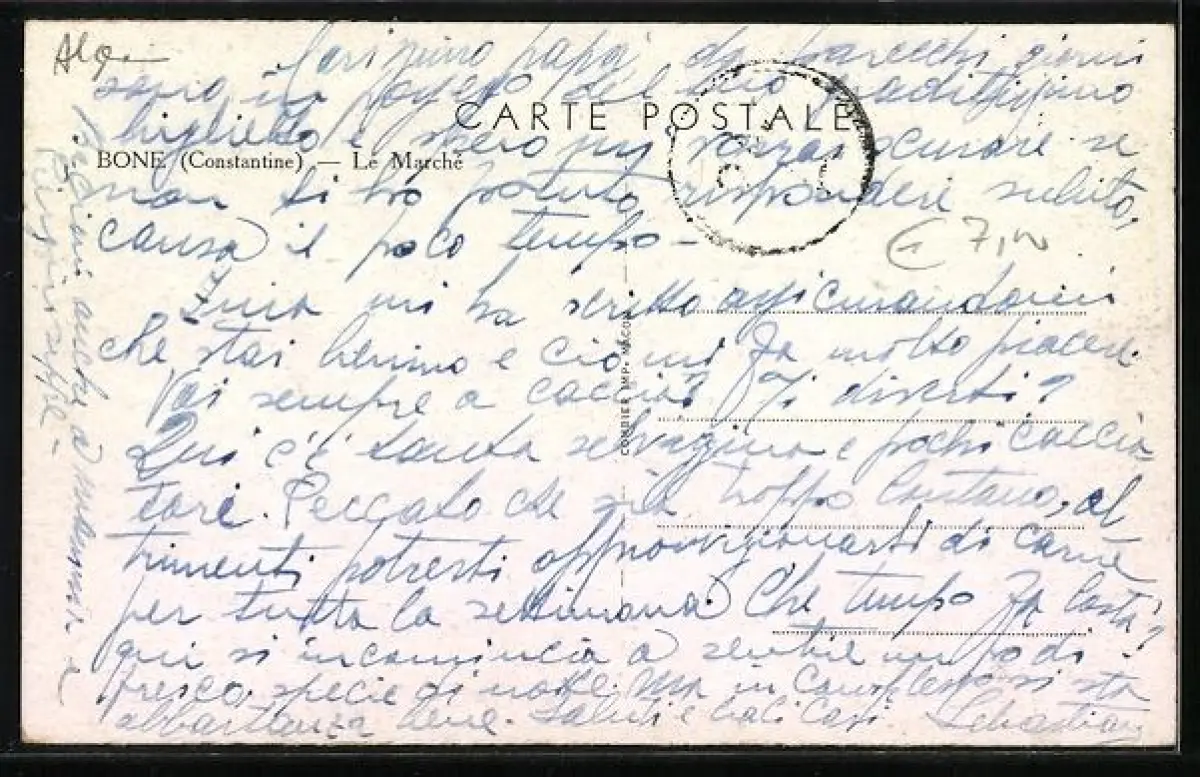 Alg.
Carissimo papà da parecchi giorni
sono in possesso del tuo graditissimo
CARTE POSTALE
biglietto e spero mi vorrai scusare se
BONE (Constantine) — Le Marché
non ti ho potuto rispondere subito,
causa il poco tempo —
€ 7,00
mi ha scritto assicurandomi
che stai benino e ciò mi fa molto piacere.
Vai sempre a caccia? Ti diverti?
Qui c'è tanta selvaggina e pochi caccia
tori. Peccato che sia troppo lontano, al
trimenti potresti approvvigionarti di carne
per tutta la settimana. Che tempo fa costà?
qui si incomincia a sentire un po' di
fresco, specie di notte. Ma in complesso si sta
abbastanza bene. Saluti e baci cari Sebastiano
anche a mammina e
COMBIER IMP. MACON